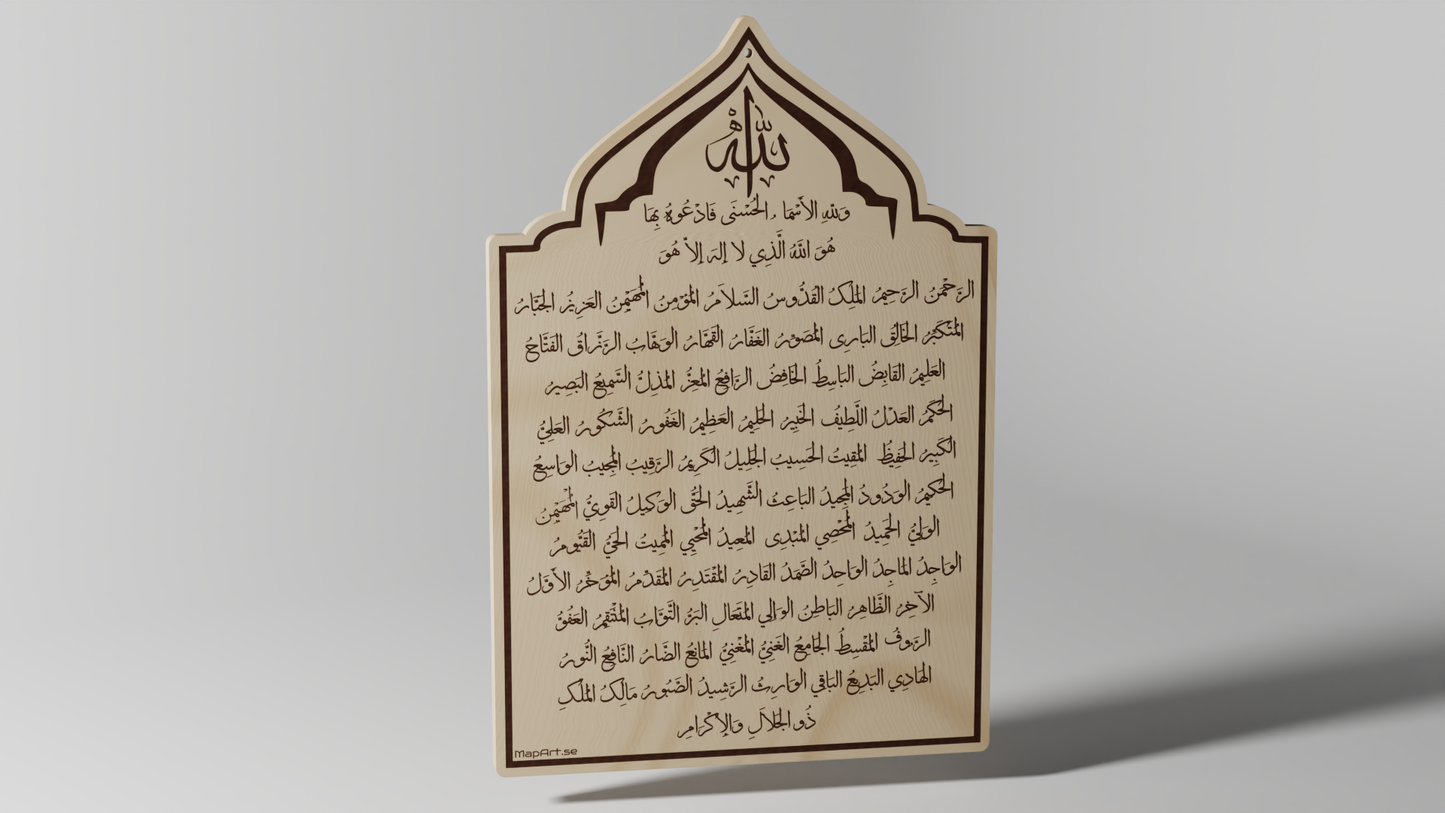 الله
وَلِلَّهِ الأَسْمَاءُ الْحُسْنَى فَادْعُوهُ بِهَا
هُوَ اللهُ الَّذِي لا إِلَهَ إِلاَّ هُوَ
الرَّحْمَنُ الرَّحِيمُ المَلِكُ القُدُّوسُ السَّلاَمُ المُؤْمِنُ المُهَيْمِنُ العَزِيزُ الجَبَّارُ
المُتَكَبِّرُ الخَالِقُ البَارِى المُصَوِّرُ الغَفَّارُ القَهَّارُ الوَهَّابُ الرَّزَّاقُ الفَتَّاحُ
العَلِيمُ القَابِضُ البَاسِطُ الخَافِضُ الرَّافِعُ المُعِزُّ المُذِلُّ السَّمِيعُ البَصِيرُ
الحَكَمُ العَدْلُ اللَّطِيفُ الخَبِيرُ الحَلِيمُ العَظِيمُ الغَفُورُ الشَّكُورُ العَلِيُّ
الكَبِيرُ الحَفِيظُ المُقِيتُ الحَسِيبُ الجَلِيلُ الكَرِيمُ الرَّقِيبُ المُجِيبُ الوَاسِعُ
الحَكِيمُ الوَدُودُ المَجِيدُ البَاعِثُ الشَّهِيدُ الحَقُّ الوَكِيلُ القَوِيُّ المُهَيْمِنُ
الوَلِيُّ الحَمِيدُ المُحْصِي المُبْدِى المُعِيدُ المُحْيِي المُمِيتُ الحَيُّ القَيُّومُ
الوَاجِدُ المَاجِدُ الوَاحِدُ الصَّمَدُ القَادِرُ المُقْتَدِرُ المُقَدِّمُ المُؤَخِّرُ الأَوَّلُ
الآخِرُ الظَّاهِرُ البَاطِنُ الوَالِي المُتَعَالِ البَرُّ التَّوَّابُ المُنْتَقِمُ العَفُوُّ
الرَّوفُ المُقْسِطُ الجَامِعُ الغَنِيُّ المُغْنِيُّ المَانِعُ الضَّارُ النَّافِعُ النُّورُ
الهَادِي البَدِيعُ البَاقِي الوَارِثُ الرَّشِيدُ الصَّبُورُ مَالِكُ المُلْكِ
ذُو الجَلاَلِ وَالإِكْرَامِ
MapArt.se